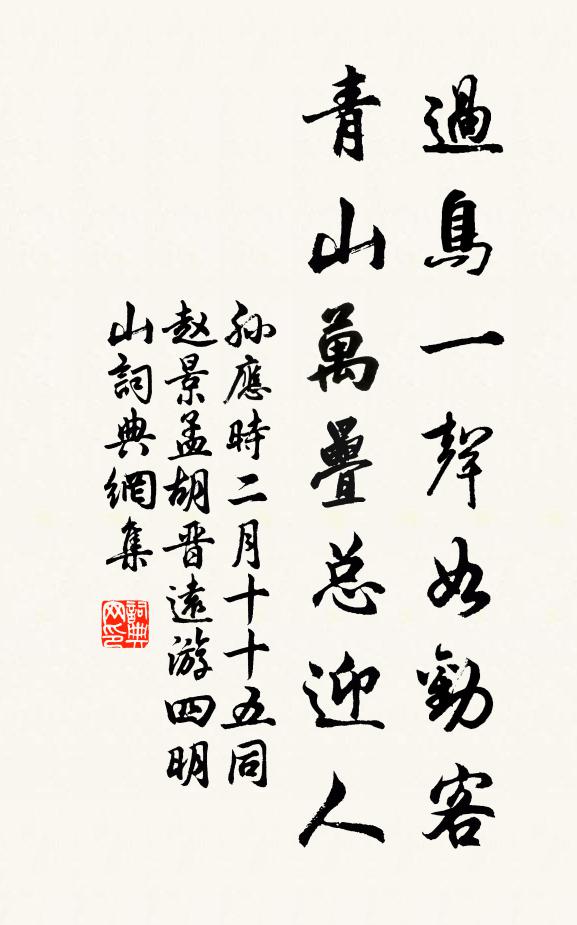 過鳥一聲如勸客
青山萬疊总迎人
孙應時二月十十五同
赵景孟胡晋遠游四明
山詞典網集
詞典
网印